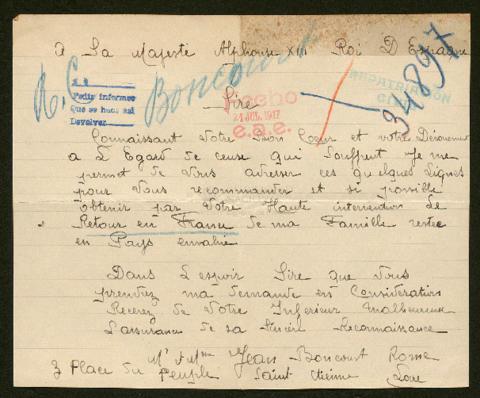 A La Majesté Alphonse XIII Roi D Espagne
R.C.
Boncourt
34897
REPATRIATION
Sire
Pedir informes
Que se haga así
Devolver
24 JUL. 1917
e.a.e.
Connaissant Votre Bon Cœur et votre Dévouement
a L Egard de ceuse qui souffrent Je me
permet de Vous adresser ces quelques Lignes
pour Vous recommander et si possible
obtenir par Votre Haute intervention Le
Retour en France de ma Famille restee
en Pays envahie
Dans L espoir Sire que Vous
prendrez ma demande en Consideration
Recevez de Votre Inferieur Malheureux
L'assurance de sa Sincère Reconnaissance
Mr et Mme Jean Boncourt Rome
3 Place du Peuple Saint Etienne Loire